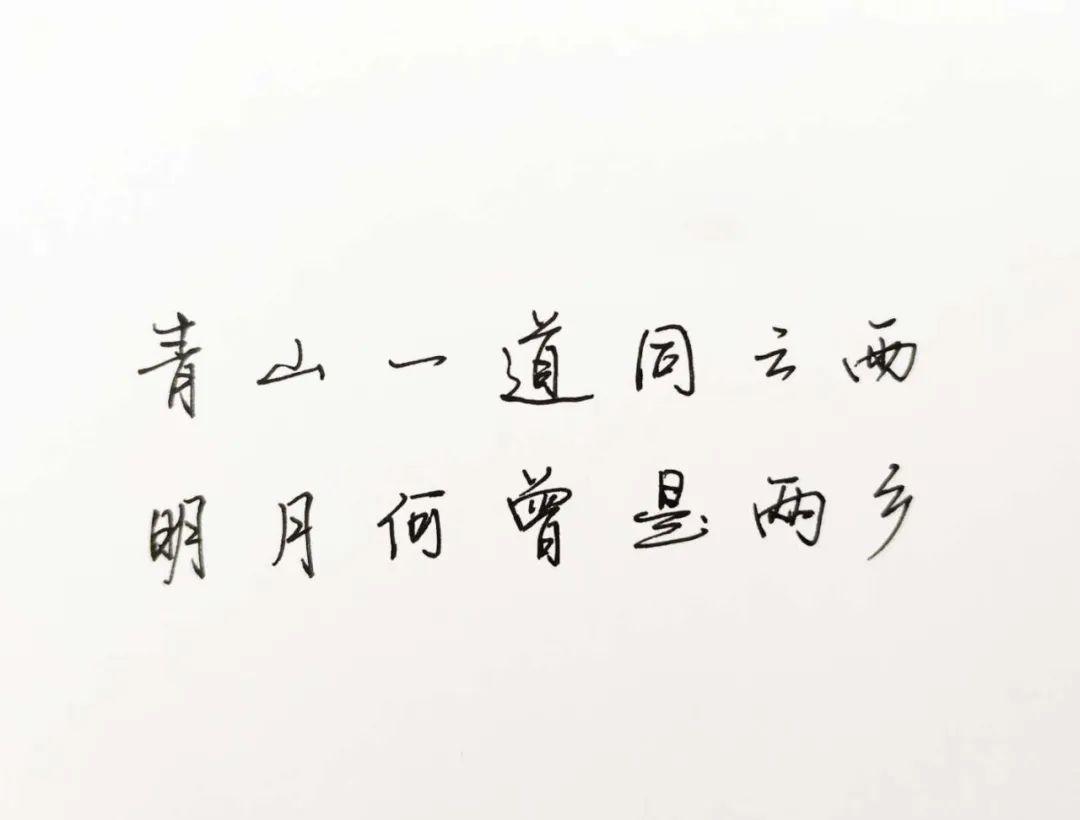 青山一道同云雨
明月何曾是两乡